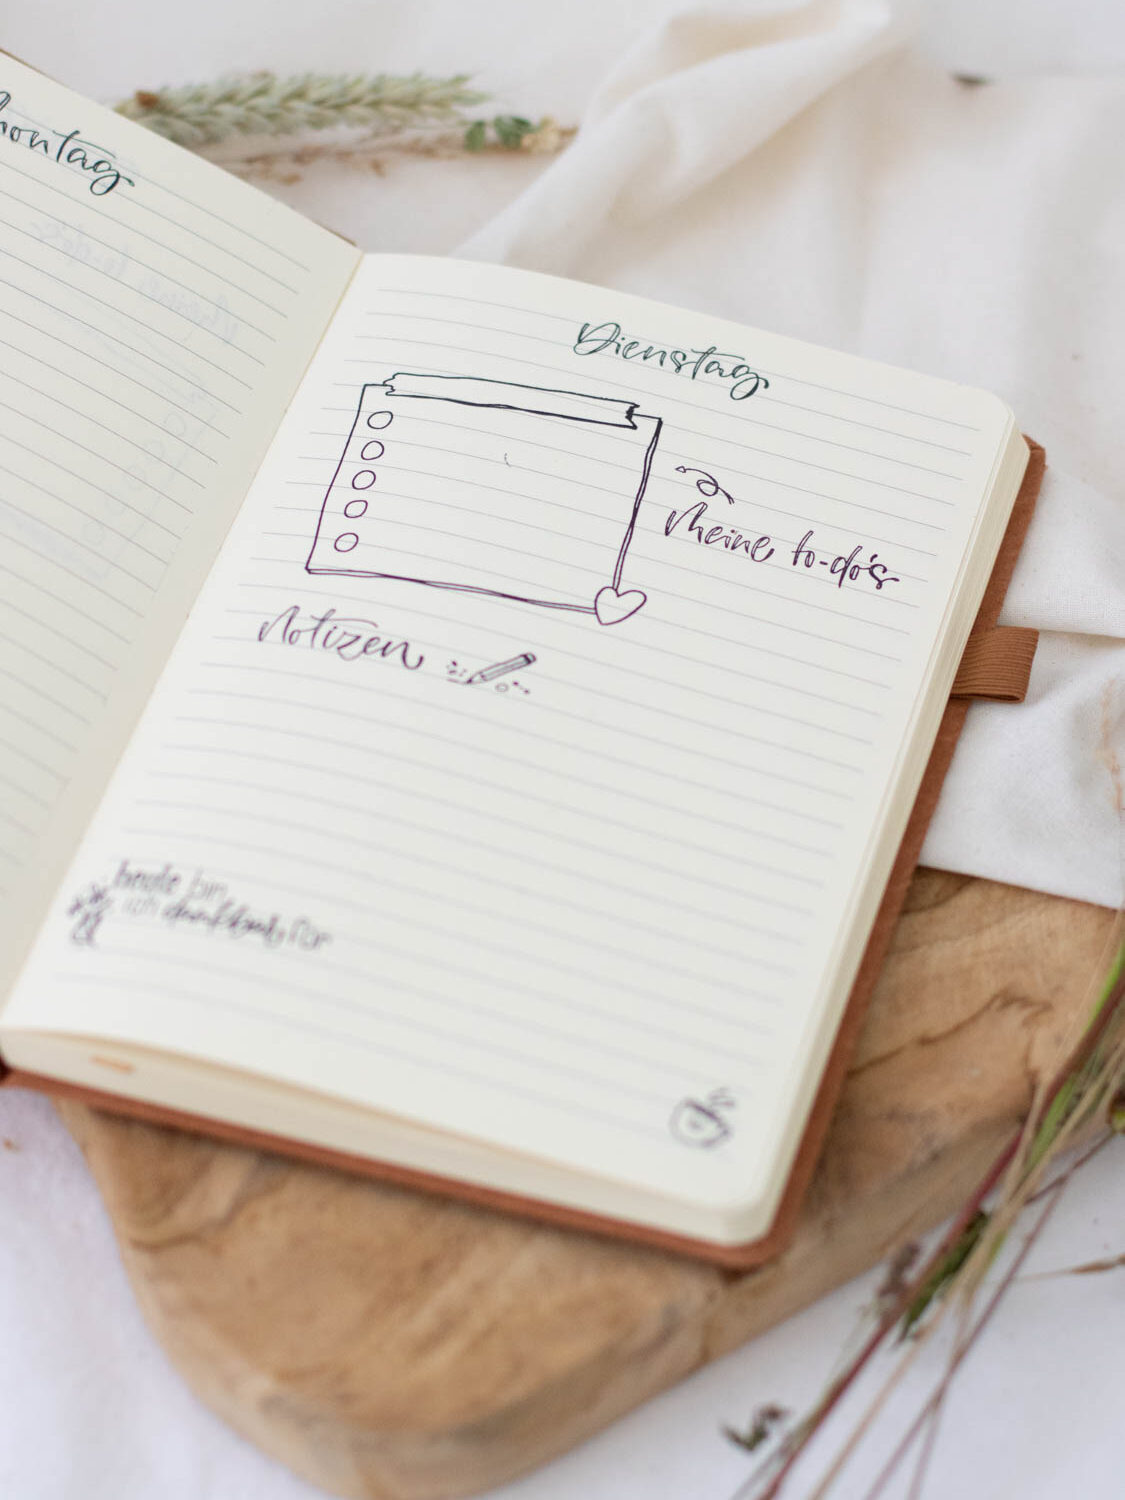 Montag
Dienstag
Meine to-do's
Notizen
heute bin
ich dankbar für